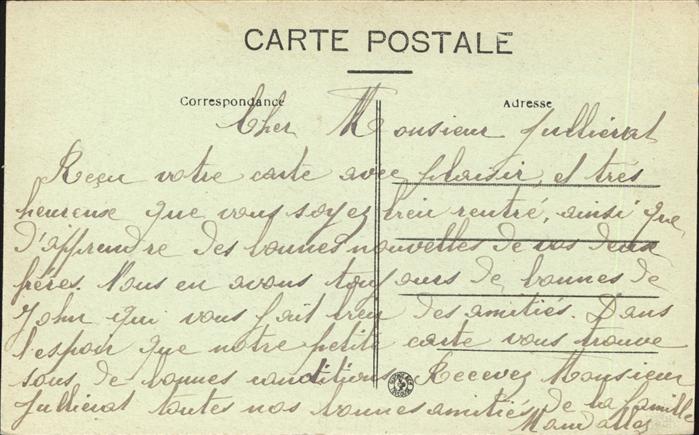 CARTE POSTALE
Correspondance
Adresse
Cher Monsieur Jullierat
Reçu votre carte avec plaisir, et très
heureuse que vous soyez bien rentré, ainsi que
d'apprendre des bonnes nouvelles de vos deux
frères. Nous en avons toujours de bonnes de
John qui vous fait bien des amitiés. Dans
l'espoir que notre petite carte vous trouve
sous de bonnes conditions. Recevez Monsieur
Jullierat toutes nos bonnes amitiés de la famille